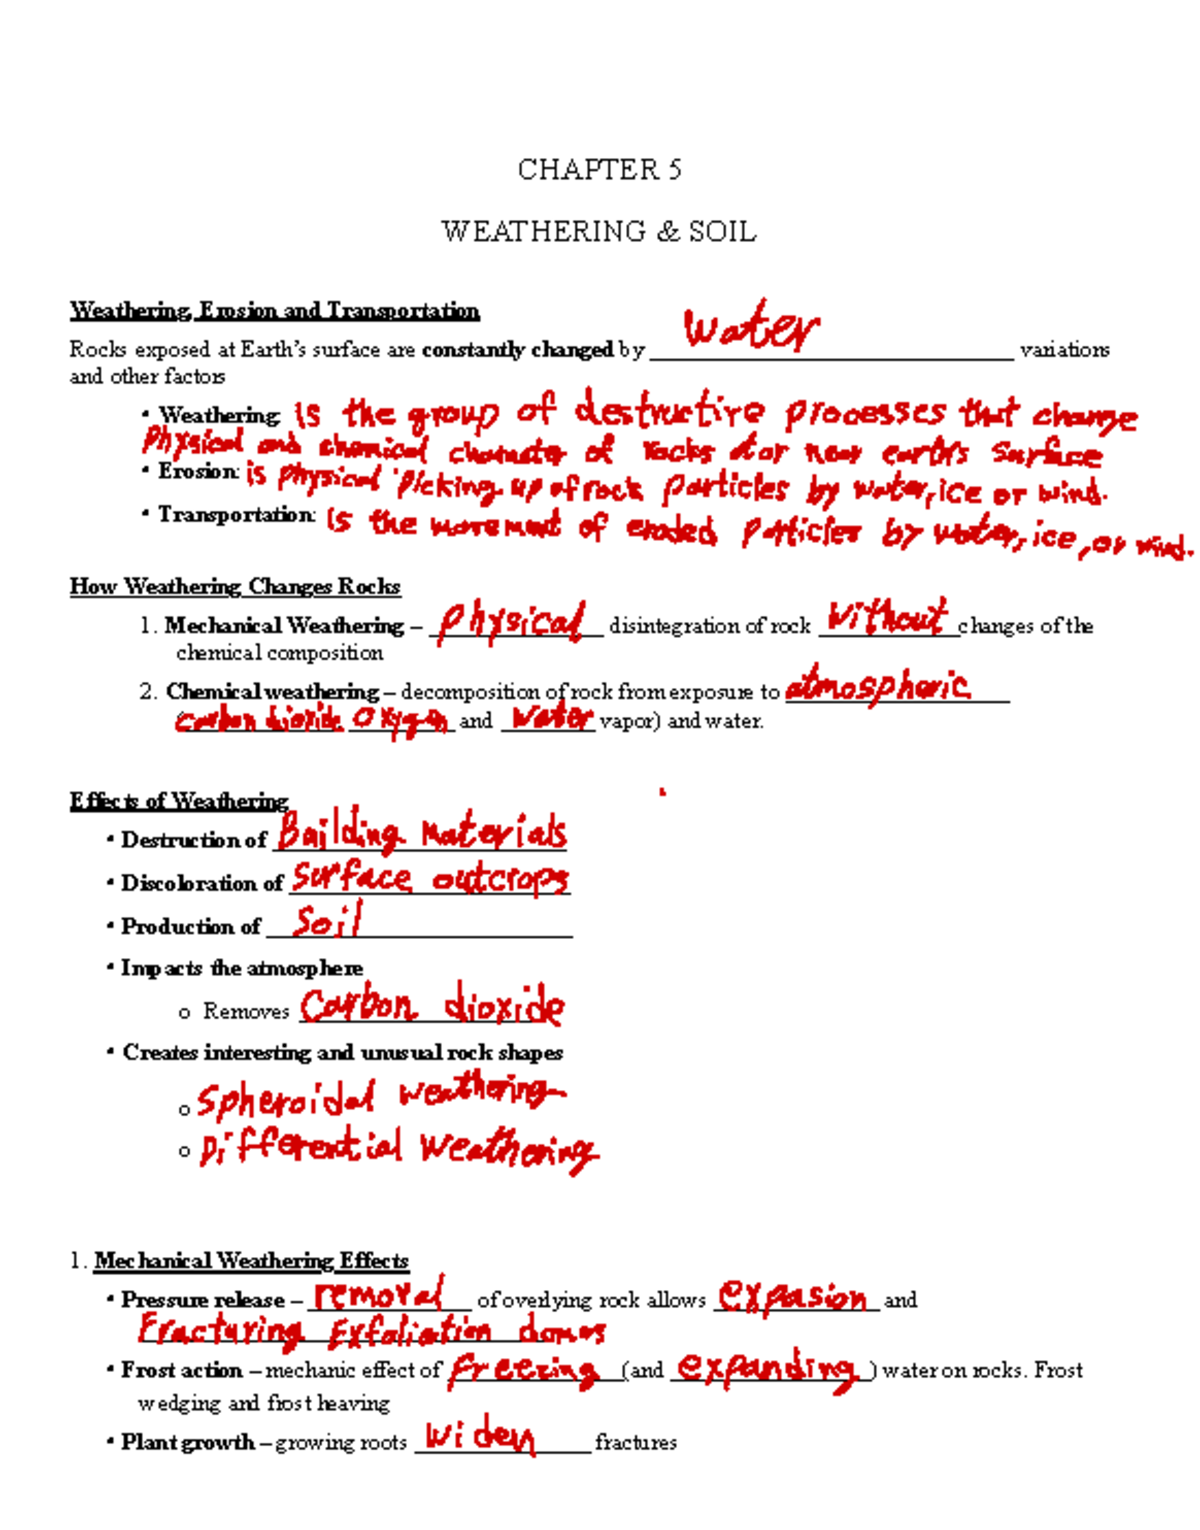 CHAPTER 5
WEATHERING & SOIL
Weathering, Erosion and Transportation
Rocks exposed at Earth's surface are constantly changed by water variations
and other factors
• Weathering: is the group of destructive processes that change
physical and chemical character of rocks at or near earth's surface
• Erosion: is physical picking up of rock particles by water, ice or wind.
• Transportation: is the movement of eroded particles by water, ice, or wind.
How Weathering Changes Rocks
1. Mechanical Weathering – physical disintegration of rock without changes of the
chemical composition
2. Chemical weathering – decomposition of rock from exposure to atmospheric
(carbon dioxide oxygen and water vapor) and water.
Effects of Weathering
• Destruction of Building materials
• Discoloration of surface outcrops
• Production of soil
• Impacts the atmosphere
o Removes carbon dioxide
• Creates interesting and unusual rock shapes
o Spheroidal weathering
o Differential weathering
1. Mechanical Weathering Effects
• Pressure release – removal of overlying rock allows expasion and
Fracturing Exfoliation domes
• Frost action – mechanic effect of freezing (and expanding) water on rocks. Frost
wedging and frost heaving
• Plant growth – growing roots widen fractures